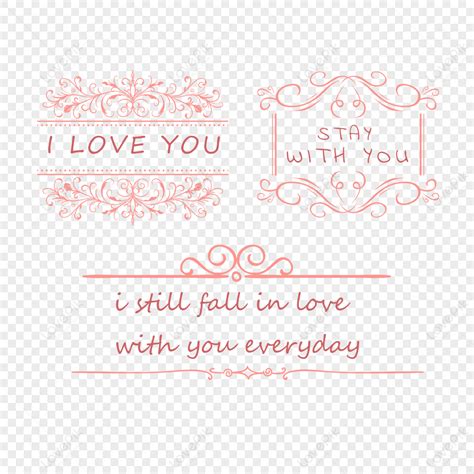 I LOVE YOU
STAY
WITH YOU
i still fall in love
with you everyday